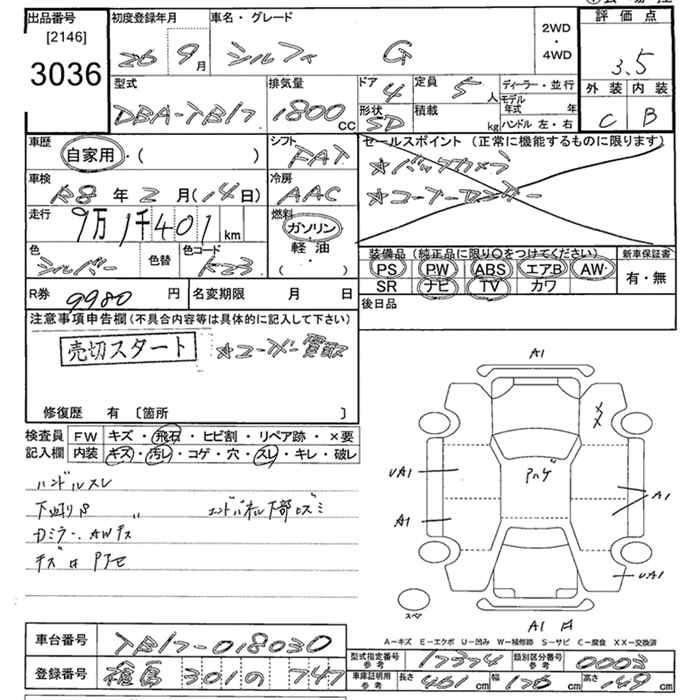 出品番号
[2146]
3036
初度登録年月
26 9月
車名・グレード
シルフィ G
2WD
・
4WD
評価点
3.5
外装 内装
C B
型式
DBA-TB17
排気量
1800 CC
ドア 4
形状 SD
定員 5 人
積載 kg
ディーラー・並行
モデル年式 年
ハンドル 左・右
車歴
自家用・( )
シフト
FAT
セールスポイント (正常に機能するものに限ります)
★バックカメラ
★コーナーセンサー
車検
R8 年 2 月(14日)
冷房
AAC
走行
9万1千401 km
燃料
ガソリン
軽油
(・)
色
シルバー
色替
色コード
K23
装備品 (純正品に限り○をつけてください)
PS PW ABS エアB AW・
SR ナビ TV カワ
新車保証書
有・無
R券 9980 円
名変期限 月 日
後日品
注意事項申告欄(不具合内容等は具体的に記入して下さい)
売切スタート
★ユーザー買取
修復歴 有 〔箇所 〕
検査員
記入欄
FW キズ・飛石・ヒビ割・リペア跡・×要
内装 キズ・汚レ・コゲ・穴・スレ・キレ・破レ
ハンドルスレ
下廻りS 〃 エンドパネル下部ユズミ
Dミラー、AWキズ
A1
XX
UA1
Pハゲ
A1
A1
UA1
スペア
A1
A-キズ E-エクボ U-凹み W-補修跡 S-サビ C-腐食 XX-交換済
車台番号
TB17-018030
登録番号
301 の 747
型式指定番号
参考
17374
類別区分番号
参考
0003
車庫証明用
参考
長さ 461 cm 幅 176 cm 高さ 149 cm